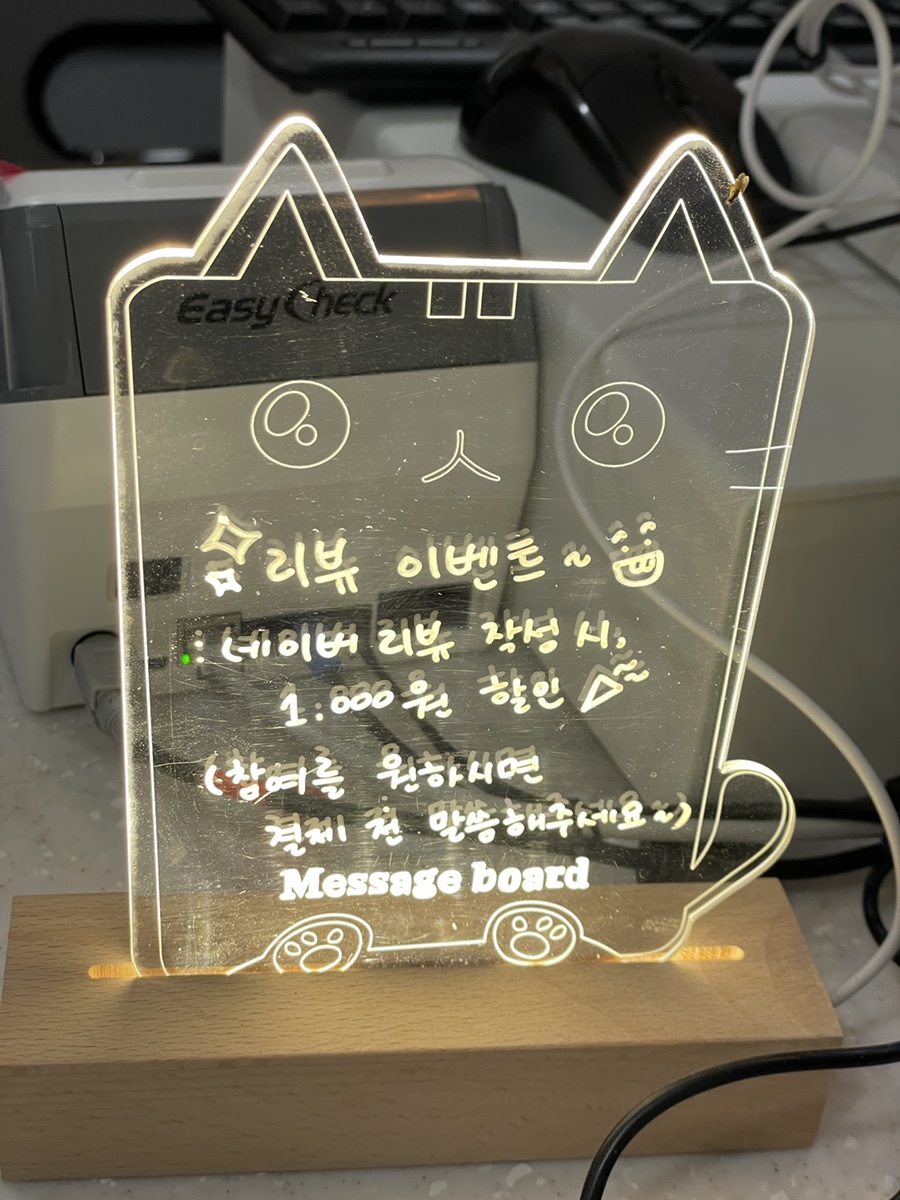 EasyCheck
리뷰 이벤트~
: 네이버 리뷰 작성 시,
1.000원 할인
(참여를 원하시면
결제 전 말씀해주세요~)
Message board